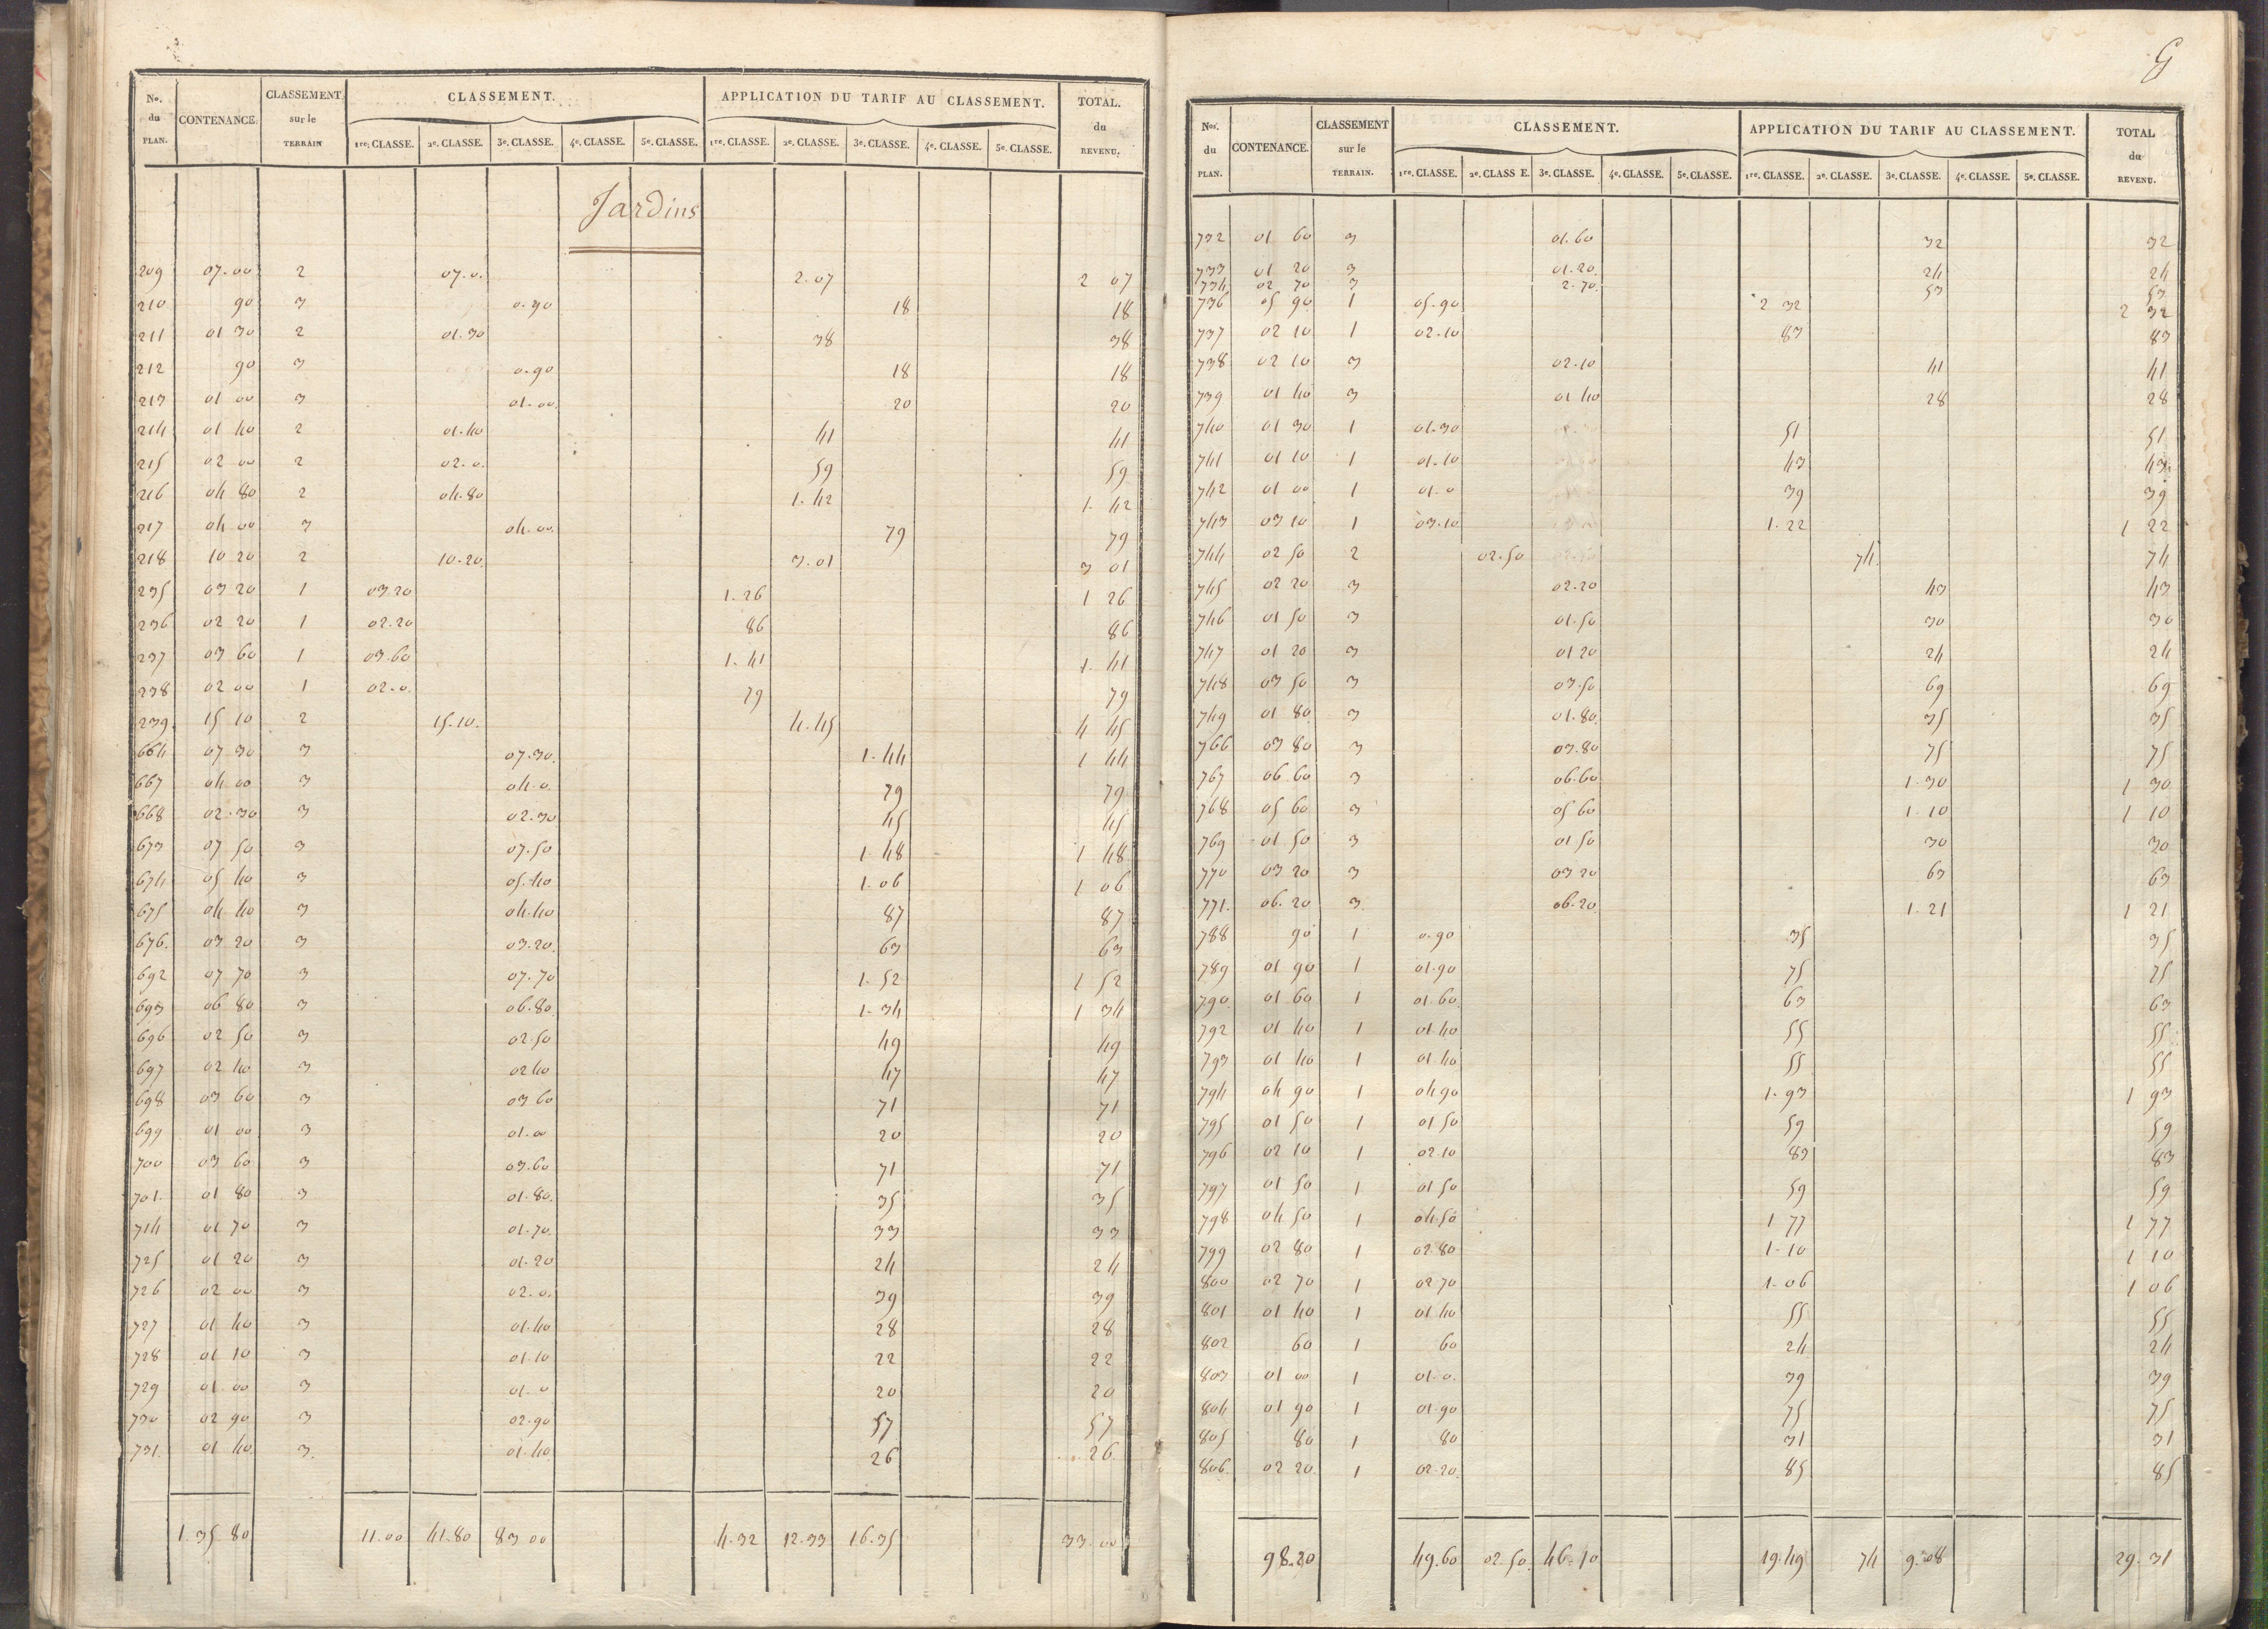 No. du PLAN. CONTENANCE. CLASSEMENT sur le TERRAIN CLASSEMENT. APPLICATION DU TARIF AU CLASSEMENT. TOTAL. du REVENU.
1re. CLASSE. 2e. CLASSE. 3e. CLASSE. 4e. CLASSE. 5e. CLASSE. 1re. CLASSE. 2e. CLASSE. 3e. CLASSE. 4e. CLASSE. 5e. CLASSE.
Jardins
209 07.00 2 07.0. 2.07 2 07
210 90 3 0.90 18 18
211 01 30 2 01.30 38 38
212 90 3 0.90 18 18
213 01 00 3 01.00 20 20
214 01 40 2 01.40 41 41
215 02 00 2 02.0. 59 59
216 04 80 2 04.80 1.42 1.42
217 04 00 3 04.00. 79 79
218 10 20 2 10.20. 3.01 3 01
235 03 20 1 03.20 1.26 1 26
236 02 20 1 02.20 86 86
237 03 60 1 03.60 1.41 1.41
238 02 00 1 02.0. 79 79
239. 15 10 2 15.10. 4.45 4 45
664 07 30 3 07.30. 1.44 1 44
667 04 00 3 04.0. 79 79
668 02.30 3 02.30 45 45
673 07 50 3 07.50 1.48 1 48
674 05 40 3 05.40 1.06 1 06
675 04 40 3 04.40 87 87
676. 03 20 3 03.20. 63 63
692 07 70 3 07.70 1.52 1 52
693 06 80 3 06.80. 1.34 1 34
696 02 50 3 02.50 49 49
697 02 40 3 02 40 47 47
698 03 60 3 03 60 71 71
699 01 00 3 01.00 20 20
700 03 60 3 03.60 71 71
701. 01 80 3 01.80. 35 35
714 01 70 3 01.70. 33 33
725 01 20 3 01.20 24 24
726 02 00 3 02.0. 39 39
727 01 40 3 01.40 28 28
728 01 10 3 01.10 22 22
729 01 00 3 01.0 20 20
730 02 90 3 02.90 57 57
731. 01 40 3. 01.40 26 26
1.35 80 11.00 41.80 83 00 4.32 12.33 16.35 33.00
G
Nos. du PLAN. CONTENANCE. CLASSEMENT sur le TERRAIN. CLASSEMENT. APPLICATION DU TARIF AU CLASSEMENT. TOTAL du REVENU.
1re. CLASSE. 2e. CLASS E. 3e. CLASSE. 4e. CLASSE. 5e. CLASSE. 1re. CLASSE. 2e. CLASSE. 3e. CLASSE. 4e. CLASSE. 5e. CLASSE.
732 01 60 3 01.60 32 32
733 01 20 3 01.20. 24 24
734 02 70 3 2.70. 53 53
736 05 90 1 05.90 2 32 2 32
737 02 10 1 02.10 83 83
738 02 10 3 02.10 41 41
739 01 40 3 01 40 28 28
740 01 30 1 01.30 51 51
741 01 10 1 01.10 43 43
742 01 00 1 01.0 39 39
743 03 10 1 03.10 1.22 1 22
744 02 50 2 02.50 74. 74
745 02 20 3 02.20 43 43
746 01 50 3 01.50 30 30
747 01 20 3 01 20 24 24
748 03 50 3 03.50 69 69
749 01 80 3 01.80. 35 35
766 03 80 3 03.80 75 75
767 06 60 3 06.60 1.30 1 30
768 05 60 3 05 60 1.10 1 10
769 01 50 3 01 50 30 30
770 03 20 3 03 20 63 63
771. 06.20 3. 06.20. 1.21 1 21
788 90 1 0.90 35 35
789 01 90 1 01.90 75 75
790. 01 60 1 01.60. 63 63
792 01 40 1 01.40 55 55
793 01 40 1 01 40 55 55
794 04 90 1 04 90 1.93 1 93
795 01 50 1 01 50 59 59
796 02 10 1 02.10 83 83
797 01 50 1 01 50 59 59
798 04 50 1 04.50 1 77 1 77
799 02 80 1 02.80 1.10 1 10
800 02 70 1 02 70 1.06 1 06
801 01 40 1 01 40 55 55
802 60 1 60 24 24
803 01 00 1 01.0. 39 39
804 01 90 1 01.90 75 75
805 80 1 80 31 31
806. 02 20. 1 02.20. 85 85
98.20 49.60 02 50. 46.10 19.49 74 9.08 29.31